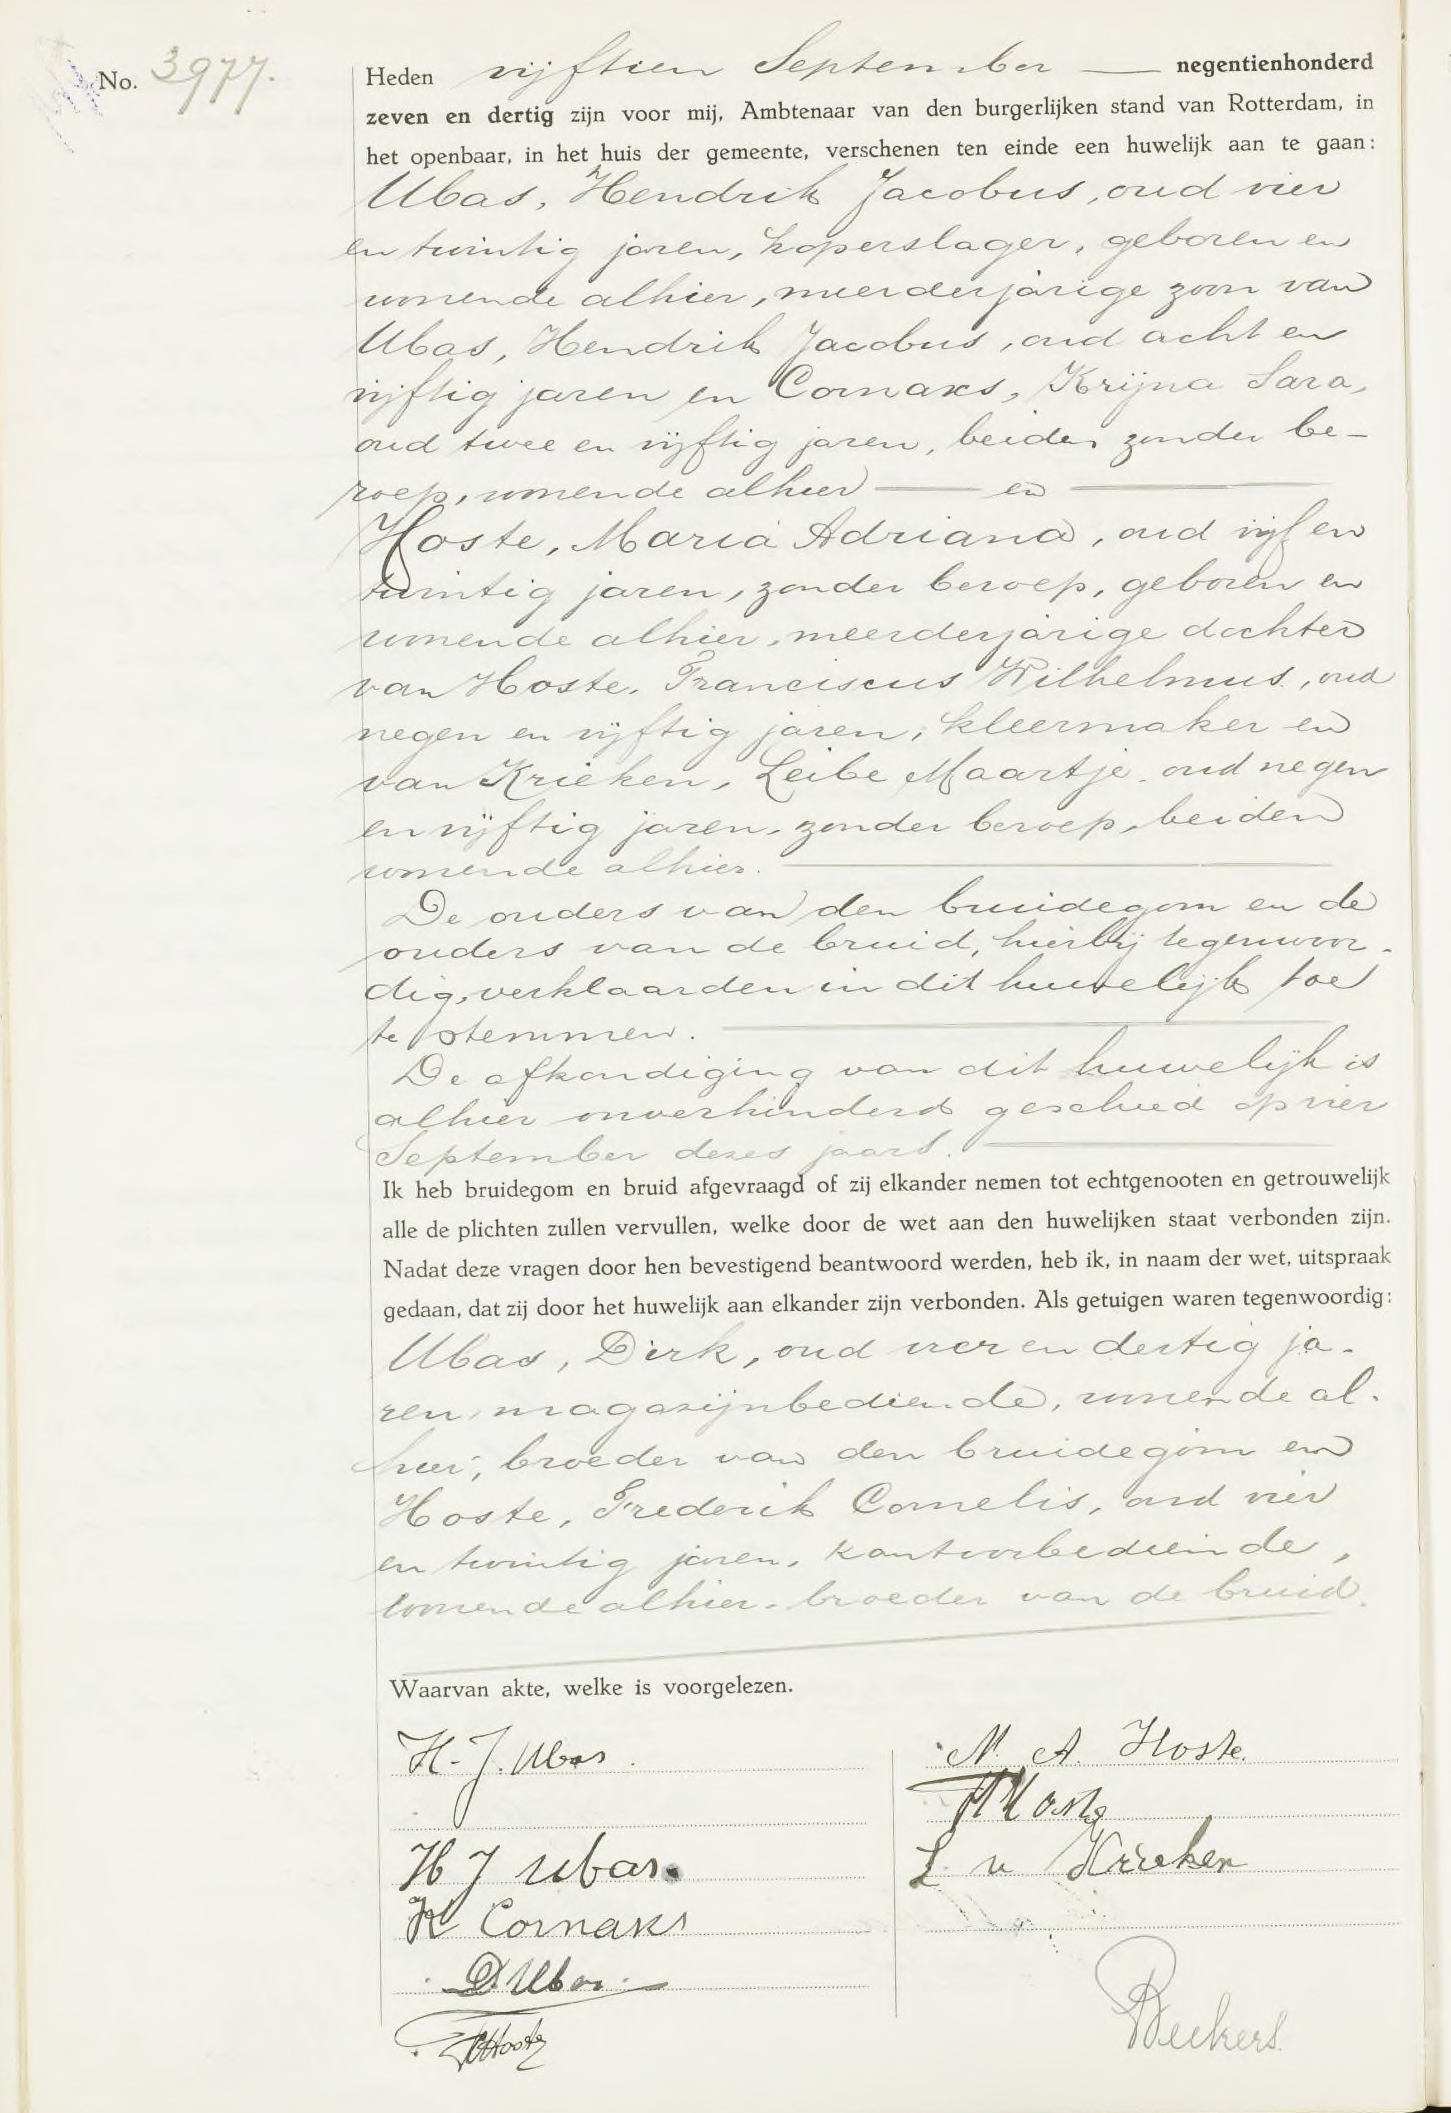 No. 3977.
Heden vijftien September — negentienhonderd
zeven en dertig zijn voor mij, Ambtenaar van den burgerlijken stand van Rotterdam, in
het openbaar, in het huis der gemeente, verschenen ten einde een huwelijk aan te gaan:
Ubas, Hendrik Jacobus, oud vier
en twintig jaren, koperslager, geboren en
wonende alhier, meerderjarige zoon van
Ubas, Hendrik Jacobus, oud acht en
vijftig jaren en Cornaks, Krijna Sara,
oud twee en vijftig jaren, beiden zonder be-
roep, wonende alhier — en —
Hoste, Maria Adriana, oud vijf en
twintig jaren, zonder beroep, geboren en
wonende alhier, meerderjarige dochter
van Hoste, Franciscus Wilhelmus, oud
negen en vijftig jaren, kleermaker en
van Krieken, Leibe Maartje, oud negen
en vijftig jaren, zonder beroep, beiden
wonende alhier. —
De ouders van den bruidegom en de
ouders van de bruid, hierbij tegenwoor-
dig, verklaarden in dit huwelijk toe
te stemmen. —
De afkondiging van dit huwelijk is
alhier onverhinderd geschied op vier
September dezes jaars. —
Ik heb bruidegom en bruid afgevraagd of zij elkander nemen tot echtgenooten en getrouwelijk
alle de plichten zullen vervullen, welke door de wet aan den huwelijken staat verbonden zijn.
Nadat deze vragen door hen bevestigend beantwoord werden, heb ik, in naam der wet, uitspraak
gedaan, dat zij door het huwelijk aan elkander zijn verbonden. Als getuigen waren tegenwoordig:
Ubas, Dirk, oud vier en dertig ja-
ren, magazijnbediende, wonende al-
hier, broeder van den bruidegom en
Hoste, Frederik Cornelis, oud vier
en twintig jaren, kantoorbediende,
wonende alhier, broeder van de bruid.
Waarvan akte, welke is voorgelezen.
H. J. Ubas
M. A. Hoste
FW Hoste
H J Ubas
L v Krieken
K Cornaks
D. Ubas
FC Hoste